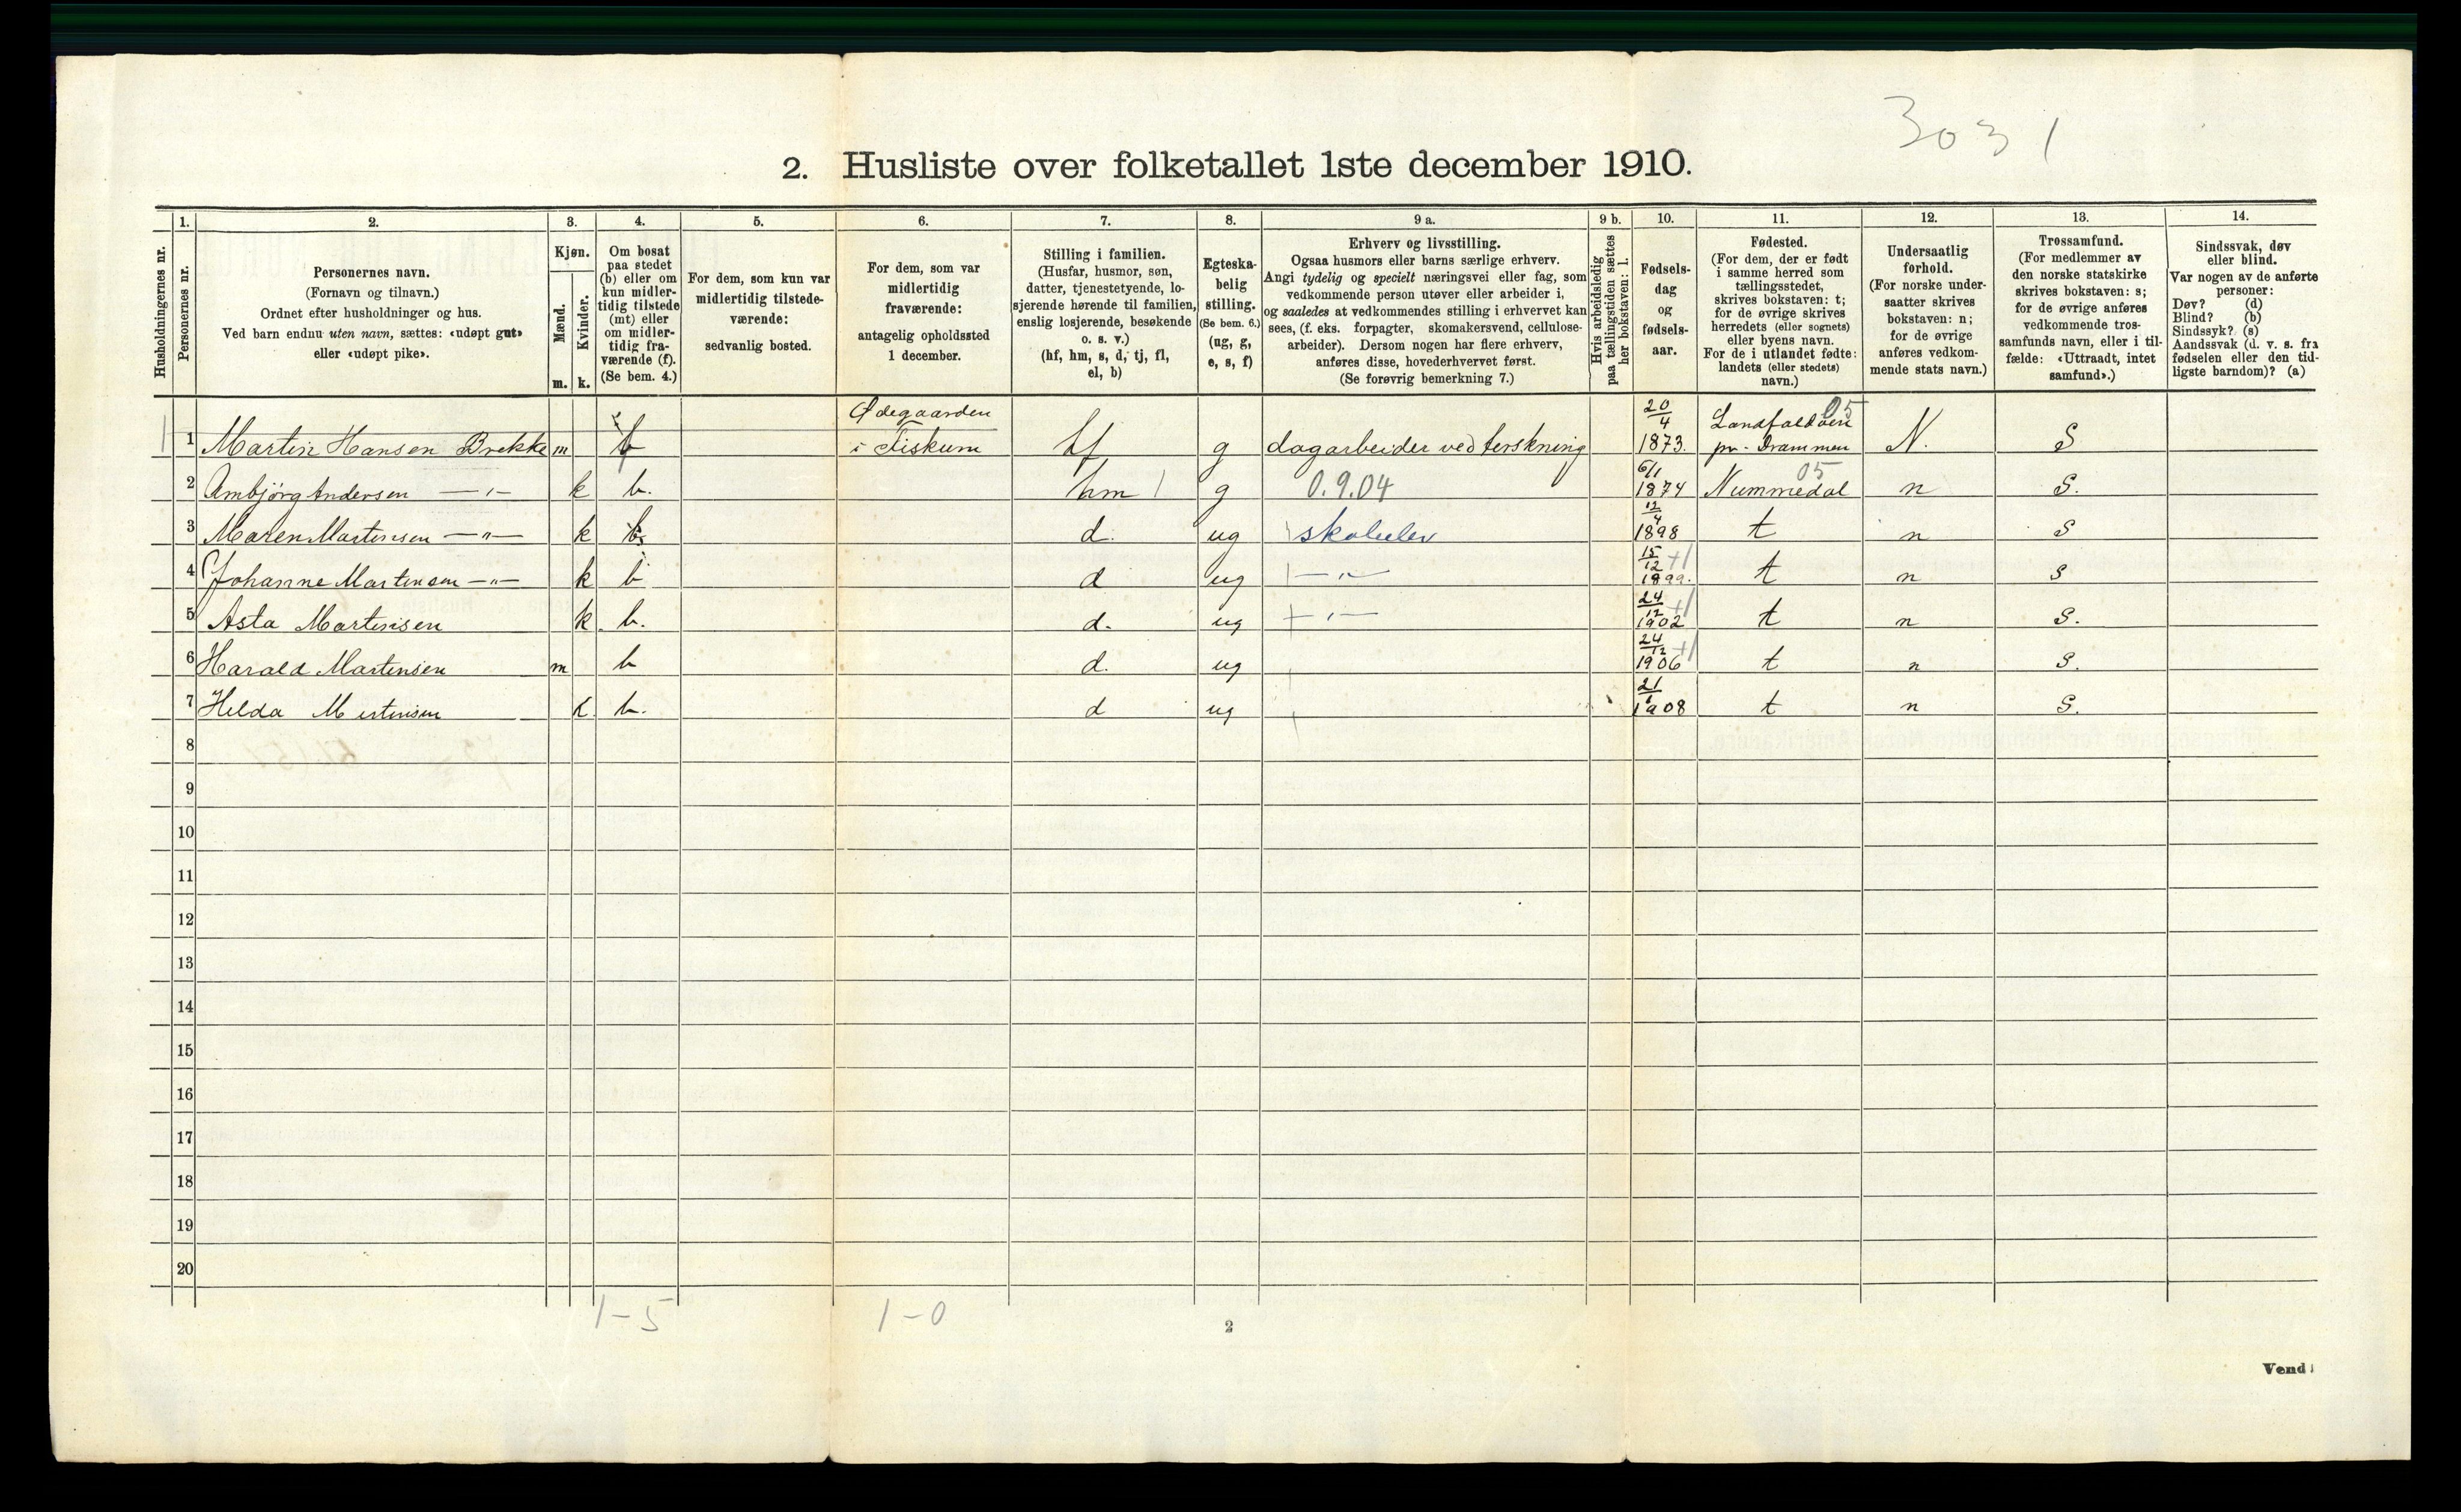 3031
2. Husliste over folketallet 1ste december 1910.
Husholdningernes nr.
1.
Personernes nr.
2.
Personernes navn.
(Fornavn og tilnavn.)
Ordnet efter husholdninger og hus.
Ved barn endnu uten navn, sættes: «udøpt gut»
eller «udøpt pike».
3.
Kjøn.
Mænd.
Kvinder.
m. k.
4.
Om bosat
paa stedet
(b) eller om
kun midler-
tidig tilstede
(mt) eller
om midler-
tidig fra-
værende (f).
(Se bem. 4.)
5.
For dem, som kun var
midlertidig tilstede-
værende:
sedvanlig bosted.
6.
For dem, som var
midlertidig
fraværende:
antagelig opholdssted
1 december.
7.
Stilling i familien.
(Husfar, husmor, søn,
datter, tjenestetyende, lo-
sjerende hørende til familien,
enslig losjerende, besøkende
o. s. v.)
(hf, hm, s, d, tj, fl,
el, b)
8.
Egteska-
belig
stilling.
(Se bem. 6.)
(ug, g,
e, s, f)
9 a.
Erhverv og livsstilling.
Ogsaa husmors eller barns særlige erhverv.
Angi tydelig og specielt næringsvei eller fag, som
vedkommende person utøver eller arbeider i,
og saaledes at vedkommendes stilling i erhvervet kan
sees, (f. eks. forpagter, skomakersvend, cellulose-
arbeider). Dersom nogen har flere erhverv,
anføres disse, hovederhvervet først.
(Se forøvrig bemerkning 7.)
9 b.
Hvis arbeidsledig
paa tællingstiden sættes
her bokstaven: l.
10.
Fødsels-
dag
og
fødsels-
aar.
11.
Fødested.
(For dem, der er født
i samme herred som
tællingsstedet,
skrives bokstaven: t;
for de øvrige skrives
herredets (eller sognets)
eller byens navn.
For de i utlandet fødte:
landets (eller stedets)
navn.)
12.
Undersaatlig
forhold.
(For norske under-
saatter skrives
bokstaven: n;
for de øvrige
anføres vedkom-
mende stats navn.)
13.
Trossamfund.
(For medlemmer av
den norske statskirke
skrives bokstaven: s;
for de øvrige anføres
vedkommende tros-
samfunds navn, eller i til-
fælde: «Uttraadt, intet
samfund».)
14.
Sindssvak, døv
eller blind.
Var nogen av de anførte
personer:
Døv? (d)
Blind? (b)
Sindssyk? (s)
Aandssvak (d. v. s. fra
fødselen eller den tid-
ligste barndom)? (a)
Ødegaarden 20/4 Landfaldøen 05
1 1 Martin Hansen Brekke m f i Fiskum hf g dagarbeider ved terskning 1873. pr. Drammen N. S
6/1 05
2 Ambjørg Andersen —„— k b. hm 1 g 0.9.04 1874 Nummedal n S.
12/4
3 Maren Martinsen —„— k b. d. ug skoleelev 1898 t n S
15/12 +1
4 Johanne Martinsen —„— k b d ug —„— 1899. t n S
24/12 +1
5 Asta Martinsen k. b. d. ug —„— 1902 t n S.
24/12 +1
6 Harald Martinsen m b d. ug 1906 t n S.
21/6
7 Helda Martinsen k. b. d ug 1908 t n S.
8
9
10
11
12
13
14
15
16
17
18
19
20
1-5 1-0
2
Vend!